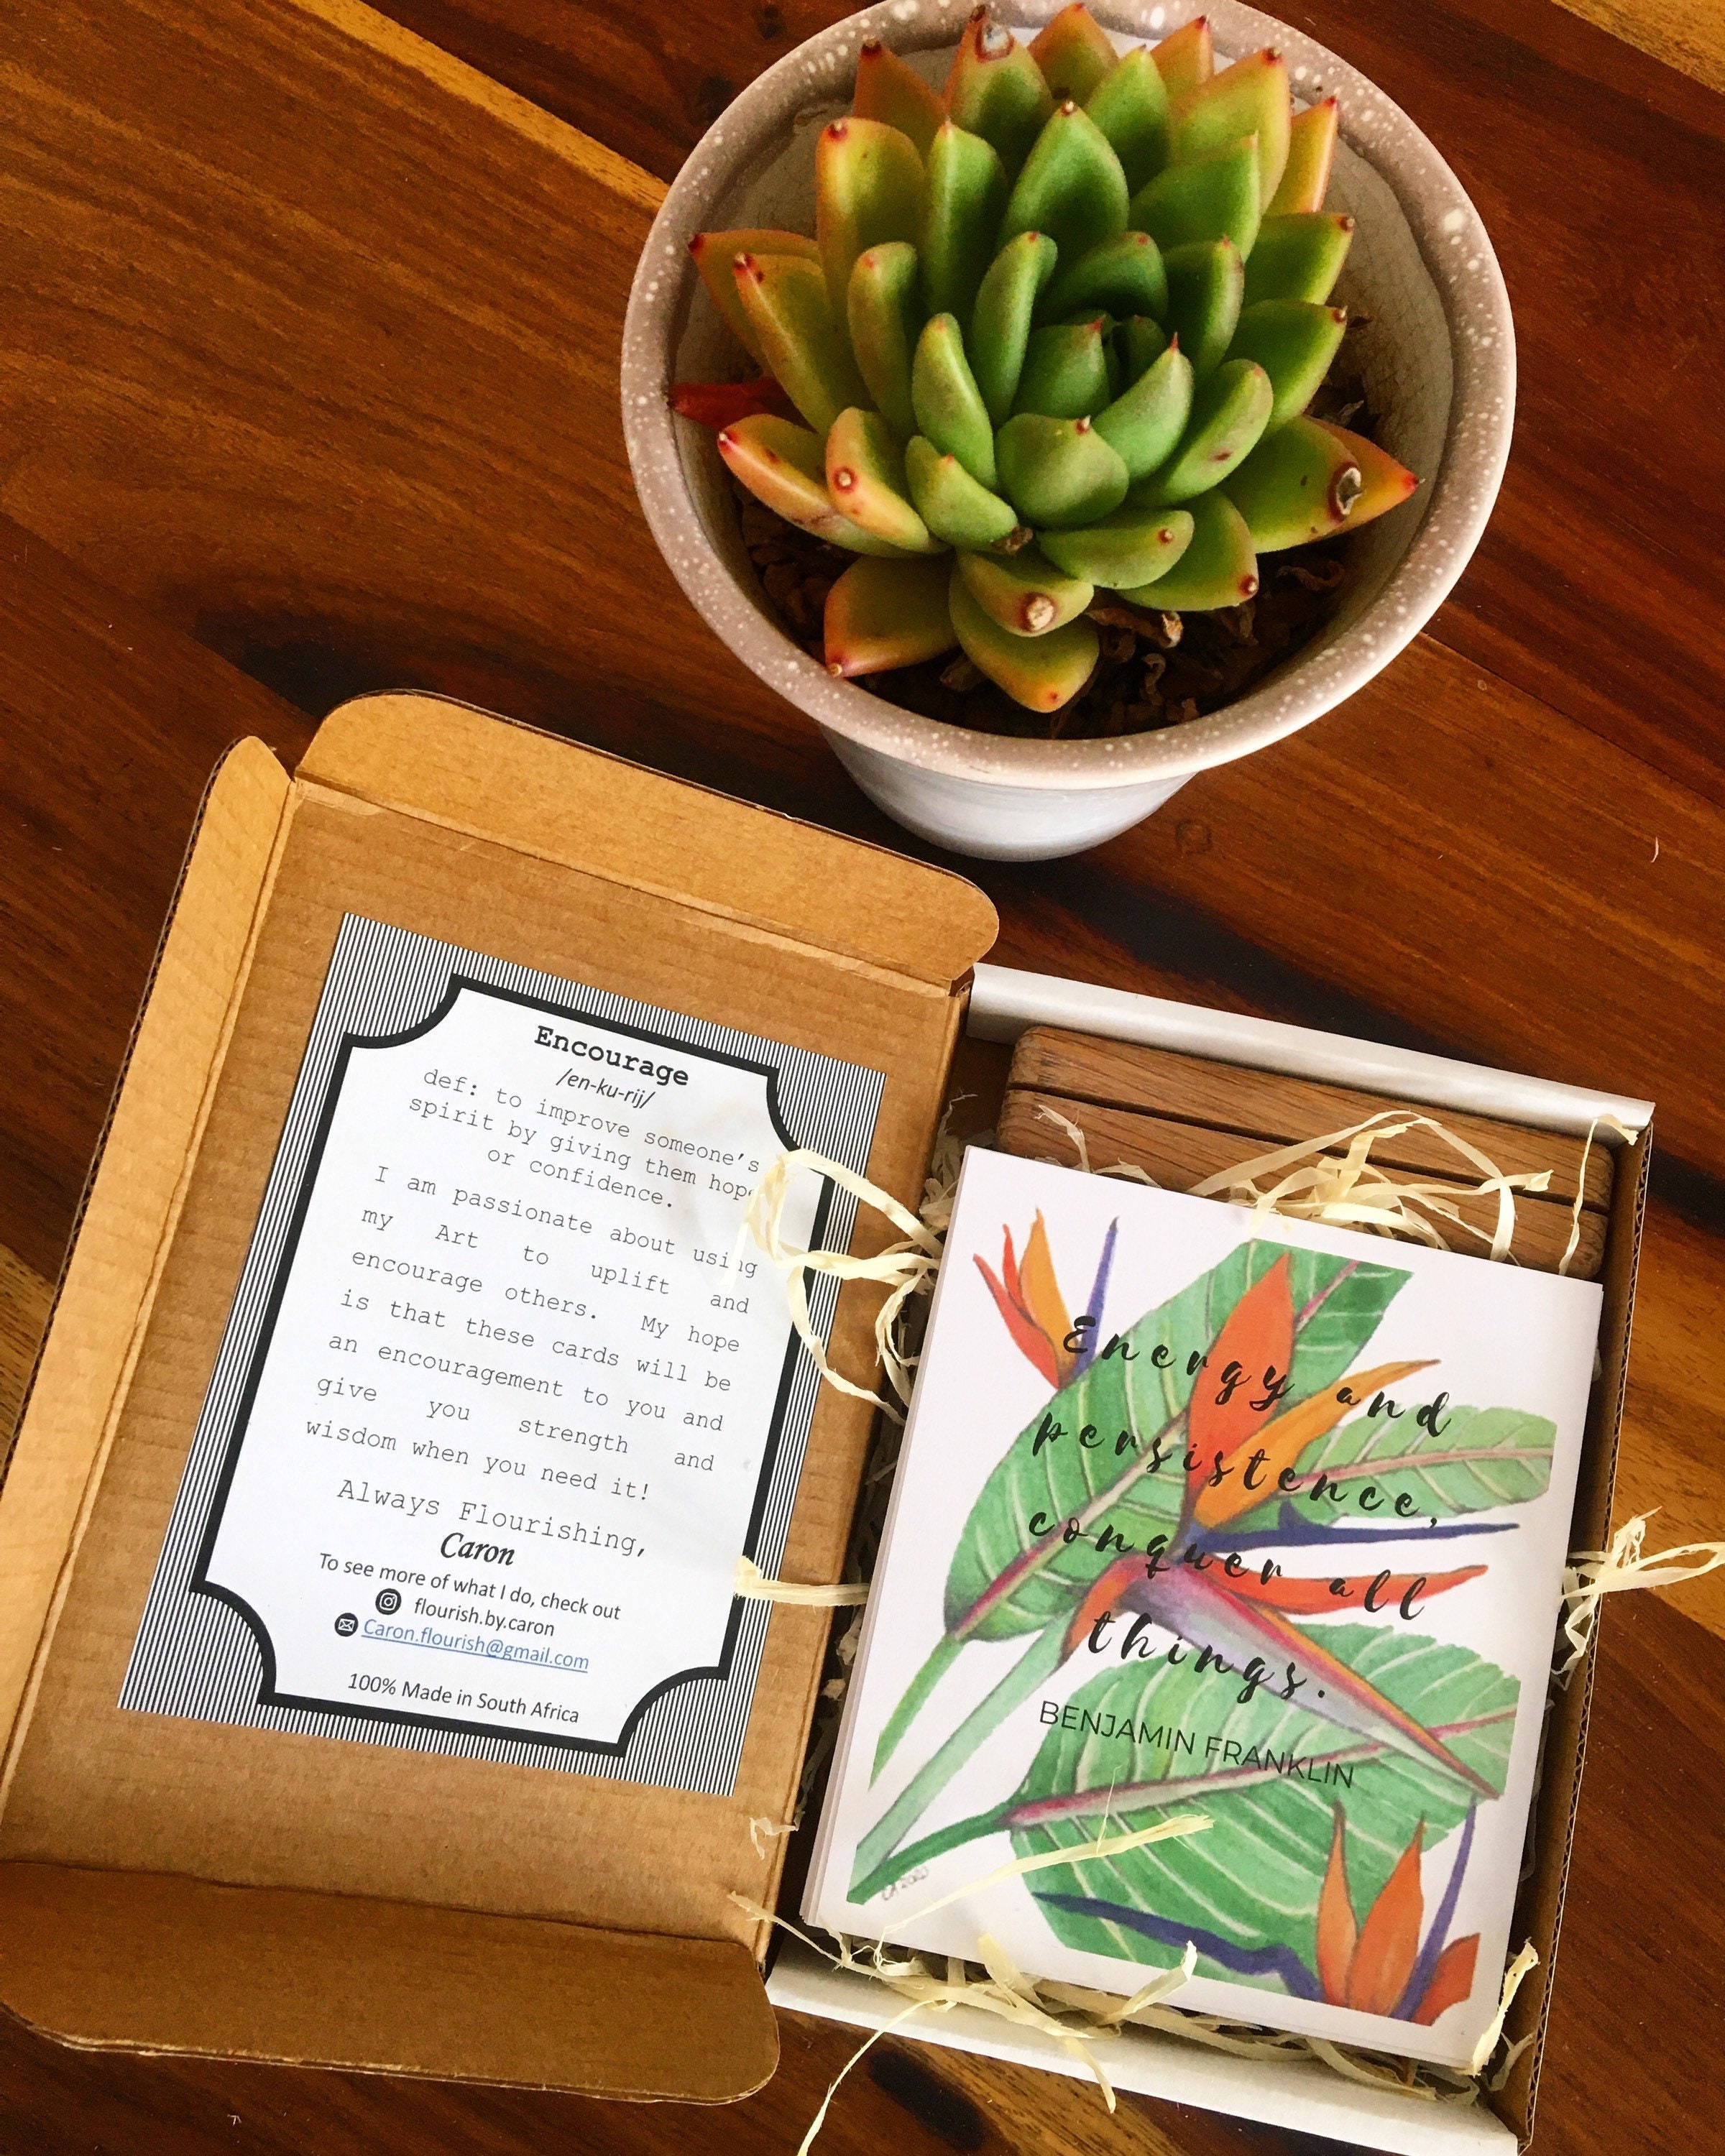 Encourage
/en-ku-rij/
def: to improve someone's
spirit by giving them hope
or confidence.
I am passionate about using
my Art to uplift and
encourage others. My hope
is that these cards will be
an encouragement to you and
give you strength and
wisdom when you need it!
Always Flourishing,
Caron
To see more of what I do, check out
flourish.by.caron
Caron.flourish@gmail.com
100% Made in South Africa
Energy and
persistence,
conquer all
things.
BENJAMIN FRANKLIN